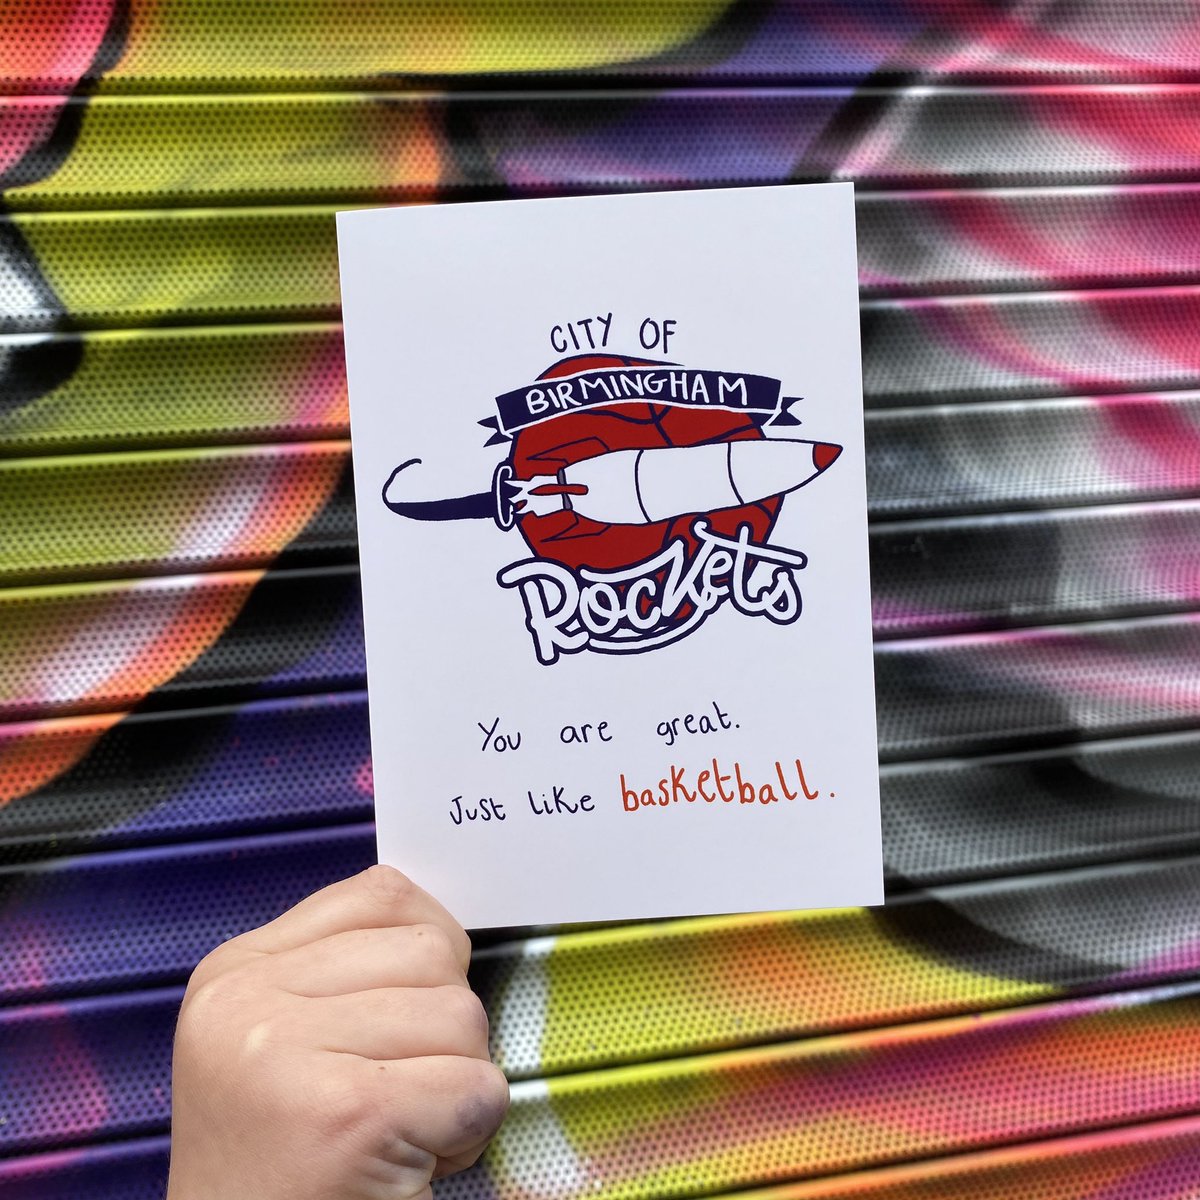 CITY OF
BIRMINGHAM
Rockets
You are great.
Just like basketball.